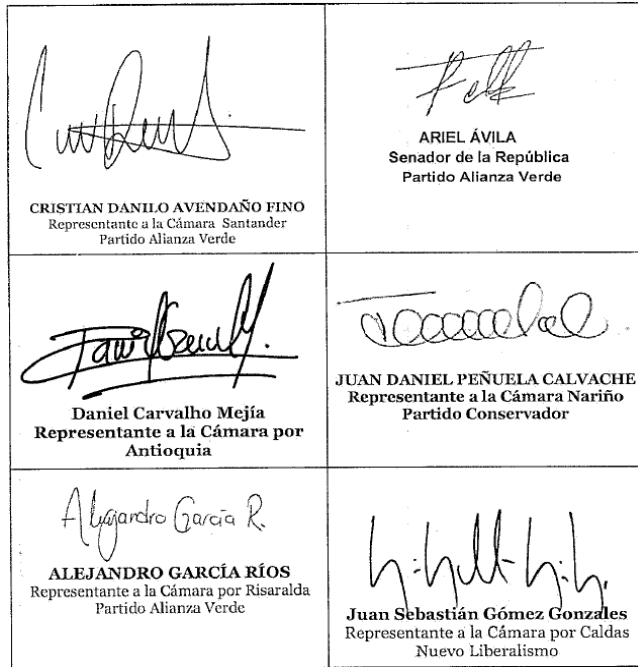 CRISTIAN DANILO AVENDAÑO FINO
Representante a la Cámara Santander
Partido Alianza Verde
ARIEL ÁVILA
Senador de la República
Partido Alianza Verde
Daniel Carvalho Mejía
Representante a la Cámara por
Antioquia
JUAN DANIEL PEÑUELA CALVACHE
Representante a la Cámara Nariño
Partido Conservador
Alejandro García R.
ALEJANDRO GARCÍA RÍOS
Representante a la Cámara por Risaralda
Partido Alianza Verde
Juan Sebastián Gómez Gonzales
Representante a la Cámara por Caldas
Nuevo Liberalismo